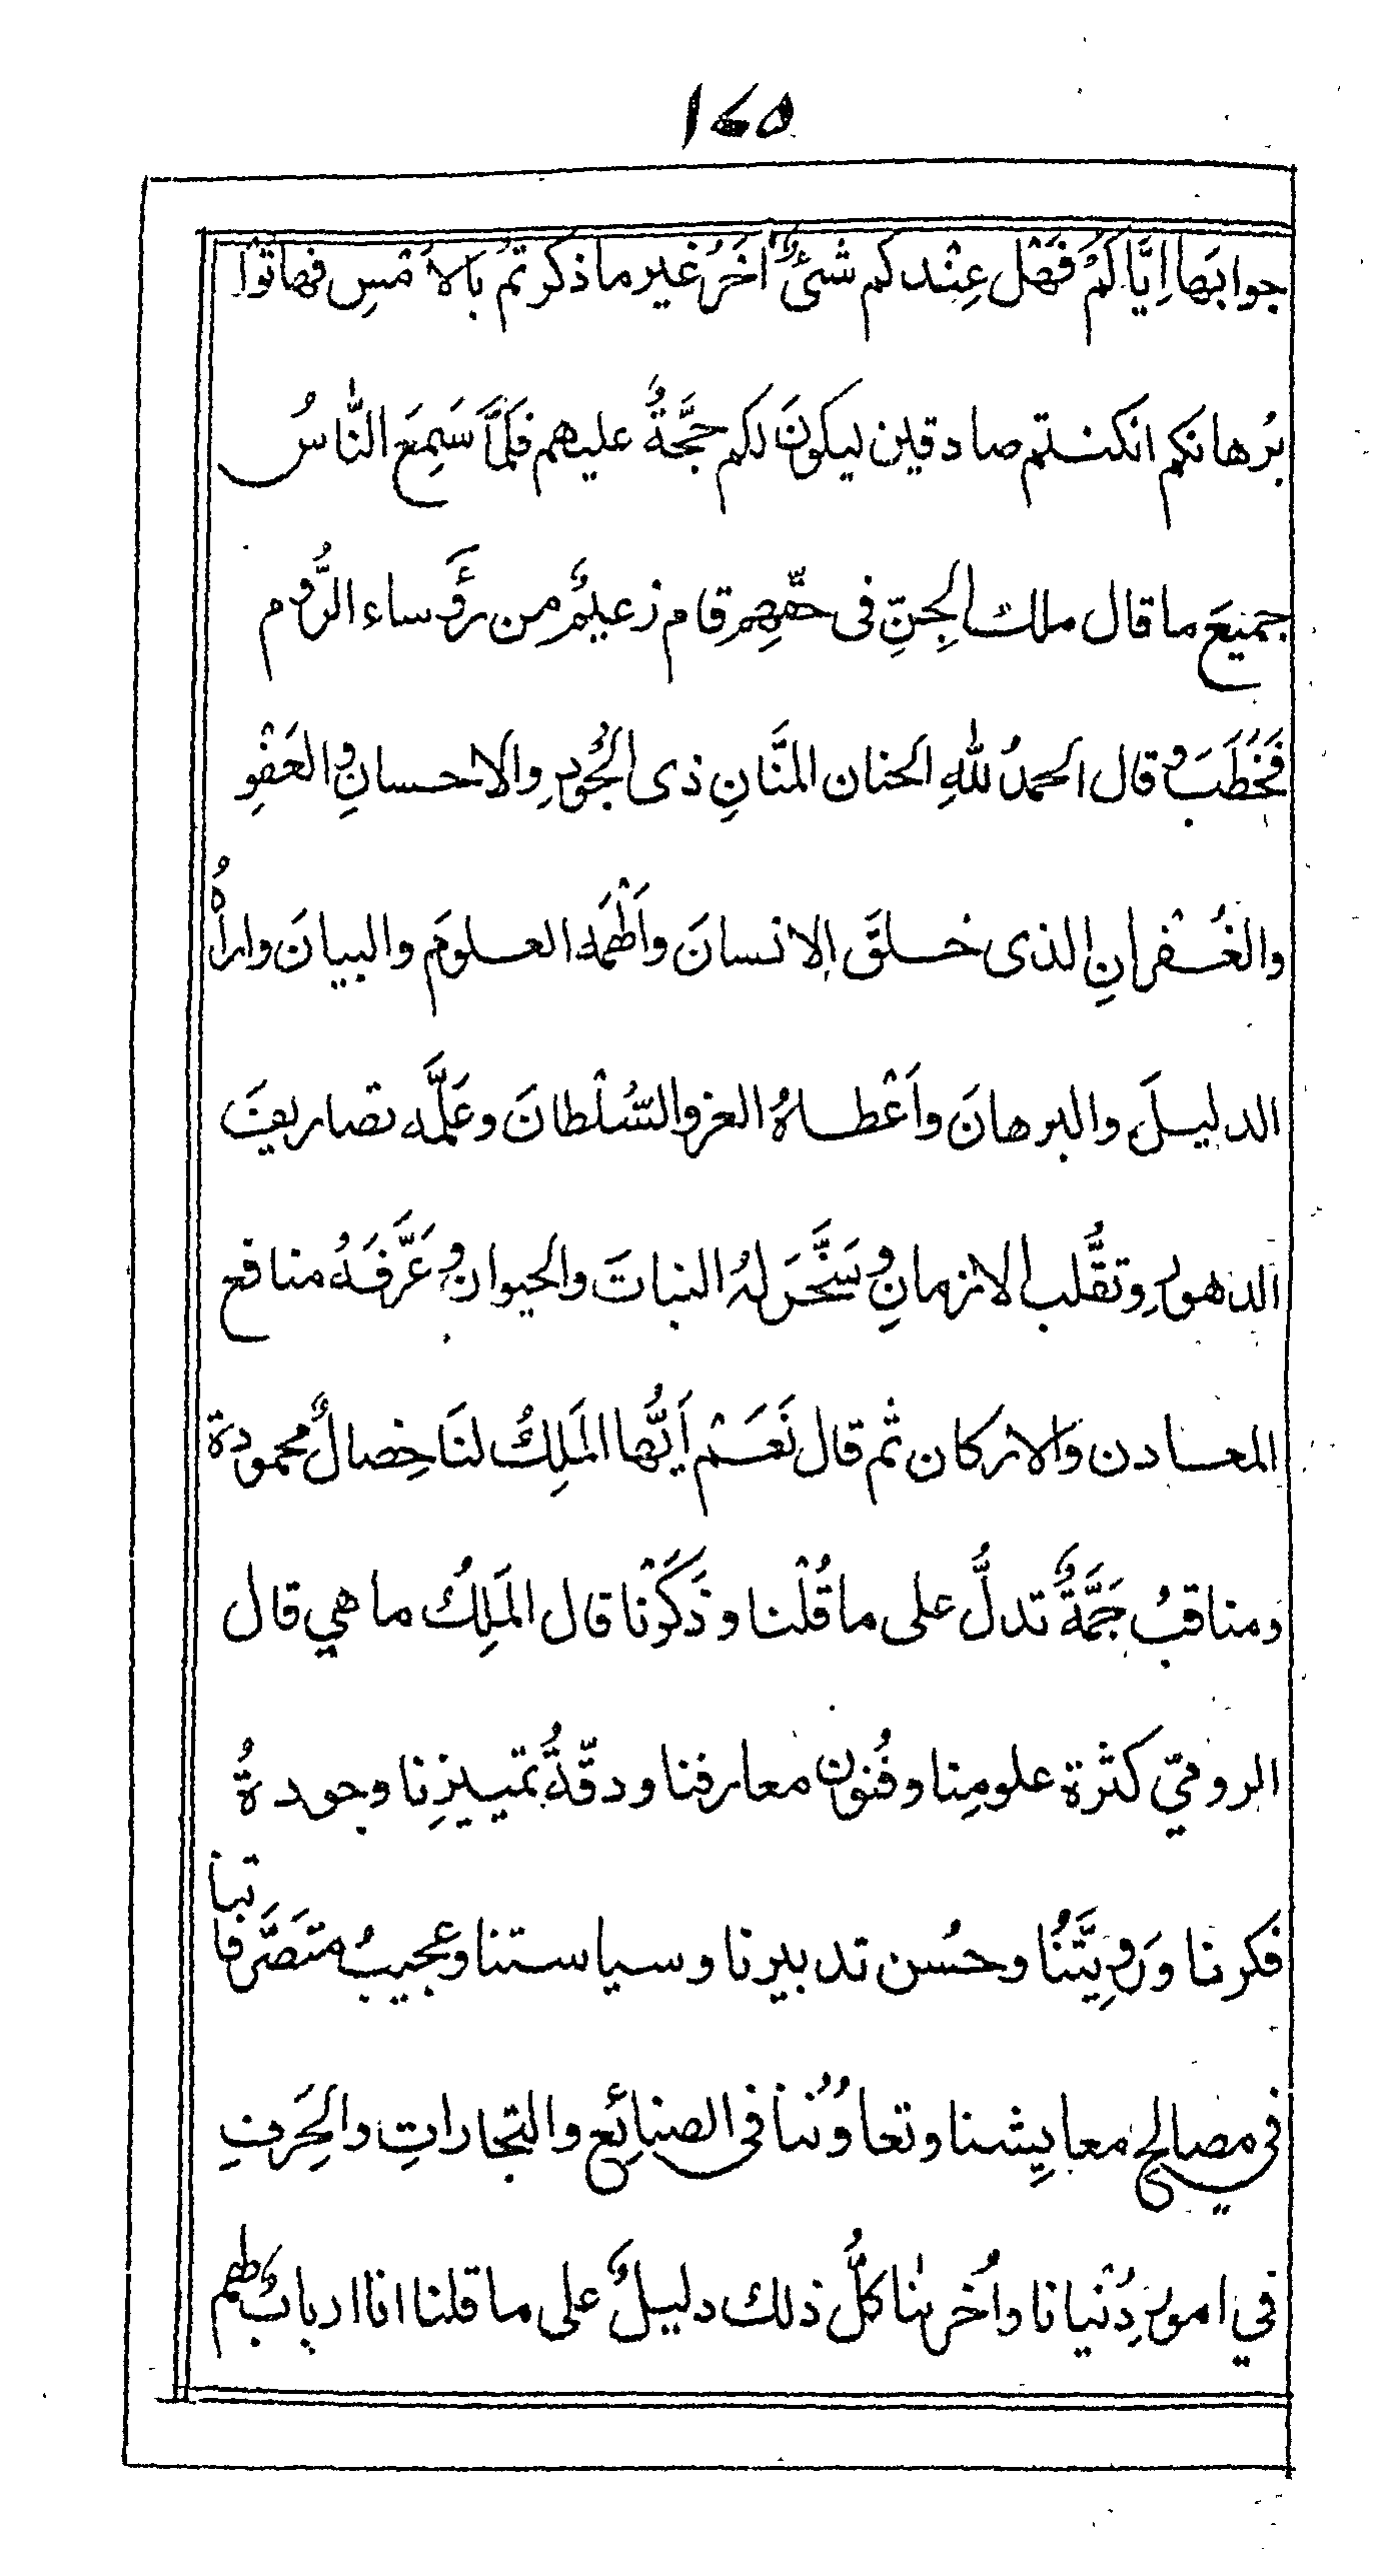 ١٤٥
جوابَها اِيَّاكُمْ فَهَلْ عِنْدكم شئٌ اٰخَرُ غير ما ذكرتُمْ بالاَمْسِ فهاتُوا
بُرهانكم انكنتم صادقين ليكونَ لكم حجَّةٌ عليهم فلمَّا سَمِعَ النَّاسُ
جميعَ ما قال ملك الجِنِّ فى حقِّهِم قام زعيمٌ من رؤساء الرُّوم
فَخَطَبَ وقال الحمدُ للهِ الحنان المنَّانِ ذى الجُودِ والاحسانِ والعَفْوِ
والغُفْرانِ الذى خلقَ الانسانَ واَلْهَمَه العلومَ والبيانَ واراهُ
الدليلَ والبرهانَ واَعْطاهُ العز والسُّلْطانَ وعَلَّمه تصاريفَ
الدهورِ وتقَّلُب الازمانِ وسَخَّرَ لهُ النباتَ والحيوان وعَرَّفَهُ منافع
المعادن والاركان ثم قال نَعَمْ اَيُّها المَلِكُ لنَا خِصالٌ محمودة
ومناقبُ جَمَّةٌ تدلُّ على ما قُلْنا وذَكَرْنا قال المَلِكُ ما هي قال
الروميّ كثْرة علومِنا وفُنون معارفنا ودقّةُ تمييزِنا وجودةُ
فكرنا ورويَّتنُا وحسُن تدبيرنا وسياستنا وعجيبُ متَصَرَّفاتنا
في مصالح معايِشنا وتعاوُننُا فى الصنائِع والتجاراتِ والحِرَفِ
في امورِ دُنْيانا واُخرٰنا كلُّ ذلك دليلٌ على ما قلنا انا اربابٌ لهم